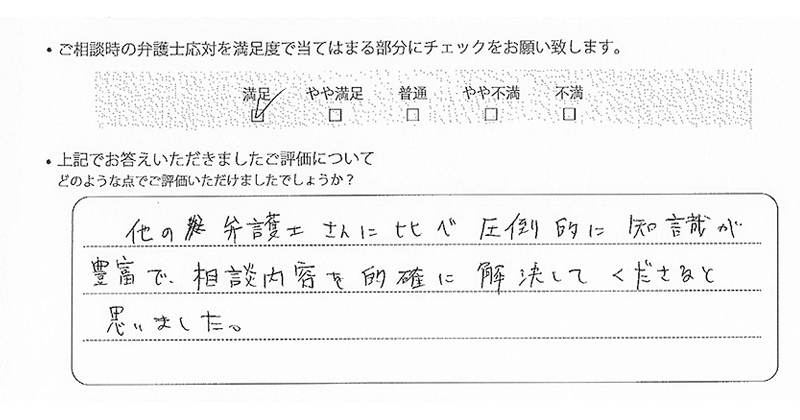 ・ご相談時の弁護士応対を満足度で当てはまる部分にチェックをお願い致します。
満足 やや満足 普通 やや不満 不満
☑ □ □ □ □
・上記でお答えいただきましたご評価について
どのような点でご評価いただけましたでしょうか？
他の弁護士さんに比べ圧倒的に知識が
豊富で、相談内容を的確に解決してくださると
思いました。